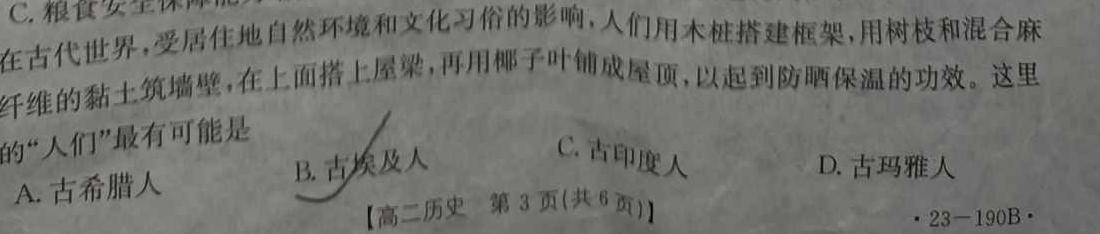 C. 粮食安全保障能
在古代世界,受居住地自然环境和文化习俗的影响,人们用木桩搭建框架,用树枝和混合麻
纤维的黏土筑墙壁,在上面搭上屋梁,再用椰子叶铺成屋顶,以起到防晒保温的功效。这里
的“人们”最有可能是
A. 古希腊人 B. 古埃及人 C. 古印度人 D. 古玛雅人
【高二历史 第 3 页(共 6 页)】 ·23-190B·